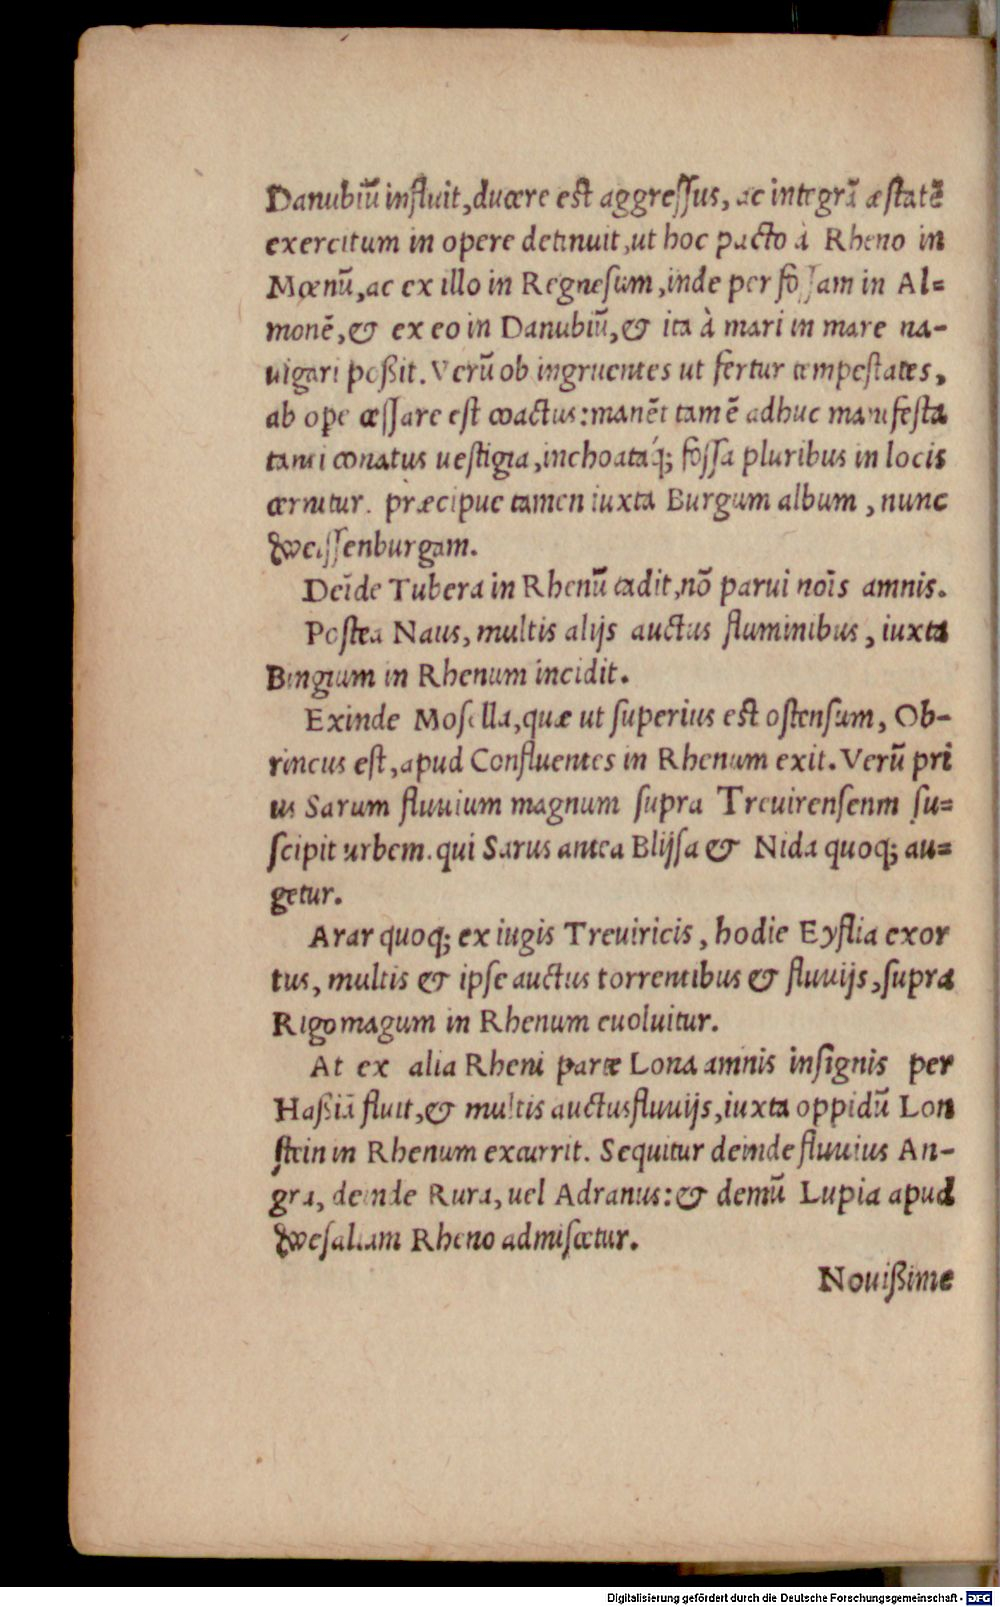 Danubiũ influit, ducere est aggressus, ac integrã æstatẽ
exercitum in opere detinuit, ut hoc pacto à Rheno in
Mœnũ, ac ex illo in Regnesum, inde per fossam in Al=
monẽ, & ex eo in Danubiũ, & ita à mari in mare na-
uigari poßit. Verũ ob ingruentes ut fertur tempestates,
ab ope cessare est coactus: manẽt tamẽ adhuc manifesta
tanti conatus uestigia, inchoatáq; fossa pluribus in locis
cernitur. præcipue tamen iuxta Burgum album, nunc
Weissenburgam.
Deĩde Tubera in Rhenũ cadit, nõ parui noĩs amnis.
Postea Naus, multis alijs auctus fluminibus, iuxta
Bingium in Rhenum incidit.
Exinde Mosella, quæ ut superius est ostensum, Ob-
rincus est, apud Confluentes in Rhenum exit. Verũ pri
us Sarum fluuium magnum supra Treuirensenm su=
scipit urbem. qui Sarus antea Blijsa & Nida quoq; au=
getur.
Arar quoq; ex iugis Treuiricis, hodie Eyflia exor
tus, multis & ipse auctus torrentibus & fluuijs, supra
Rigomagum in Rhenum euoluitur.
At ex alia Rheni parte Lona amnis insignis per
Haßiã fluit, & multis auctus fluuijs, iuxta oppidũ Lon
stein in Rhenum excurrit. Sequitur deinde fluuius An-
gra, deinde Rura, uel Adranus: & demũ Lupia apud
Wesaliam Rheno admiscetur.
Nouißime
Digitalisierung gefördert durch die Deutsche Forschungsgemeinschaft - DFG